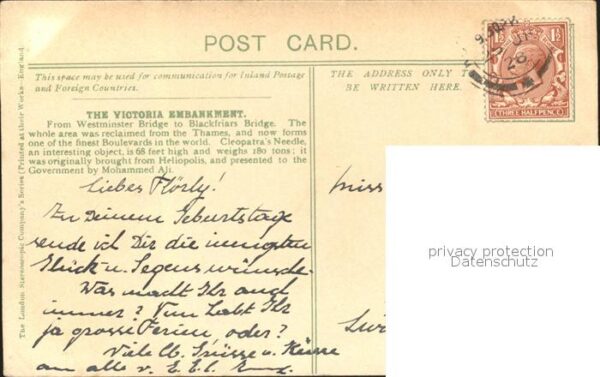 POST CARD.
This space may be used for communication for Inland Postage
and Foreign Countries.
THE ADDRESS ONLY TO
BE WRITTEN HERE.
THE VICTORIA EMBANKMENT.
From Westminster Bridge to Blackfriars Bridge. The
whole area was reclaimed from the Thames, and now forms
one of the finest Boulevards in the world. Cleopatra's Needle,
an interesting object, is 68 feet high and weighs 180 tons; it
was originally brought from Heliopolis, and presented to the
Government by Mohammed Ali.
The London Stereoscopic Company's Series (Printed at their Works—England.
1½ 1½
THREE HALFPENCE
9.30 PM
JR
26
Liebes Flörly!
Zu Deinem Geburtstage
sende ich Dir die innigsten
Glück u. Segenswünsche.
Was macht Ihr auch
immer? Nun habt Ihr
ja grosse Ferien, oder?
Viele lb. Grüsse u. Küsse
an alle v. E.E.l.
Miss
privacy protection
Datenschutz